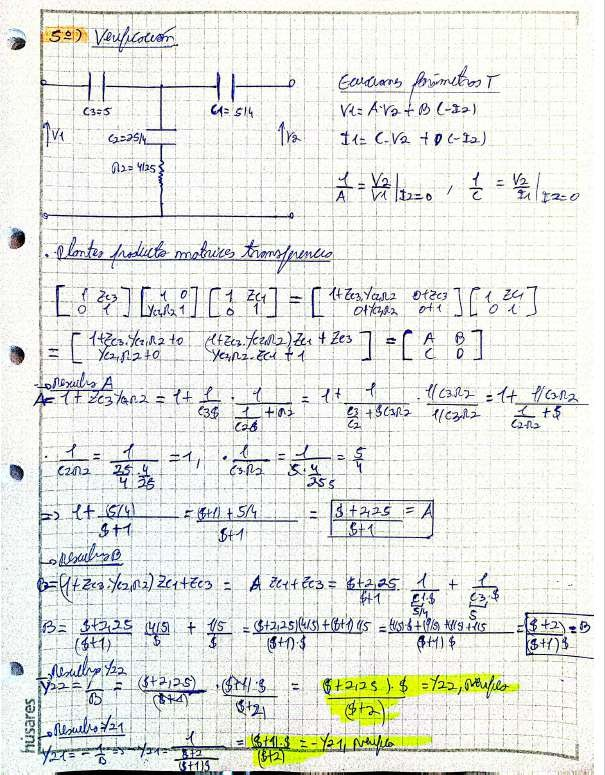 5º) Verificación
C3=5
C1=5/4
C2=25/4
R2=4/25
↑V1
↑V2
Ecuaciones parámetros T
V1=A·V2 + B(-I2)
I1=C·V2 + D(-I2)
1/A = V2/V1 |I2=0 , 1/C = V2/I1 |I2=0
· Planteo producto matrices transferencia
[1 ZC3; 0 1] [1 0; YC2,R2 1] [1 ZC1; 0 1] = [1+ZC3.YC2,R2 0+ZC3; 0+YC2,R2 0+1] [1 ZC1; 0 1]
= [1+ZC3.YC2,R2+0 (1+ZC3.YC2R2)ZC1+ZC3; YC2,R2+0 YC2,R2.ZC1+1] = [A B; C D]
→ Resuelvo A
A= 1+ZC3 YC2R2 = 1+ 1/(C3$) · 1/(1/(C2$)+R2) = 1+ 1/(C3/C2+$C3R2) · (1/C3R2)/(1/C3R2) = 1+ (1/C3R2)/(1/(C2R2)+$)
· 1/(C2R2) = 1/(25/4·4/25) = 1, · 1/(C3R2) = 1/(5·4/25) = 5/4
=> 1+ (5/4)/($+1) = (($+1)+5/4)/($+1) = ($+2,25)/($+1) = A
→ Resuelvo B
B=(1+ZC3.YC2,R2)ZC1+ZC3 = A ZC1+ZC3 = ($+2,25)/($+1) · 1/(C1·$) + 1/(C3·$)
5/4
5
B= ($+2,25)/($+1) (4/5)/$ + (1/5)/$ = (($+2,25)(4/5)+($+1)1/5)/(($+1)·$) = (4/5$+(9/5)+1/5$+1/5)/(($+1)$) = ($+2)/(($+1)$) = B
→ Resuelvo Y22
Y22= A/B = ($+2,25)/($+1) · ($+1)·$/($+2) = ($+2,25)·$/($+2) = Y22, verifica
→ Resuelvo Y21
Y21= -1/B => -Y21= 1/(($+2)/(($+1)$)) = ($+1)·$/($+2) = -Y21, verifica
husares